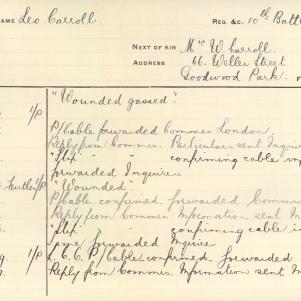 NAME Leo Carroll. REG. &c. 10th Batt
NEXT OF KIN Mrs W. Carroll.
ADDRESS 66. Weller Street
Goodwood Park.
1/P "Wounded gassed".
P/Cable forwarded Commrs London.
Reply from Commrs. Particulars sent Inquirer
"Slip " " confirming cable
forwarded Inquirer
1/P "Wounded"
P/Cable confirmed. forwarded Commrs
Reply from Commrs Information sent In
"Slip " " confirming cable
forwarded Inquirer
1/P P/Cable confirmed. forwarded
Reply from Commrs Information sent